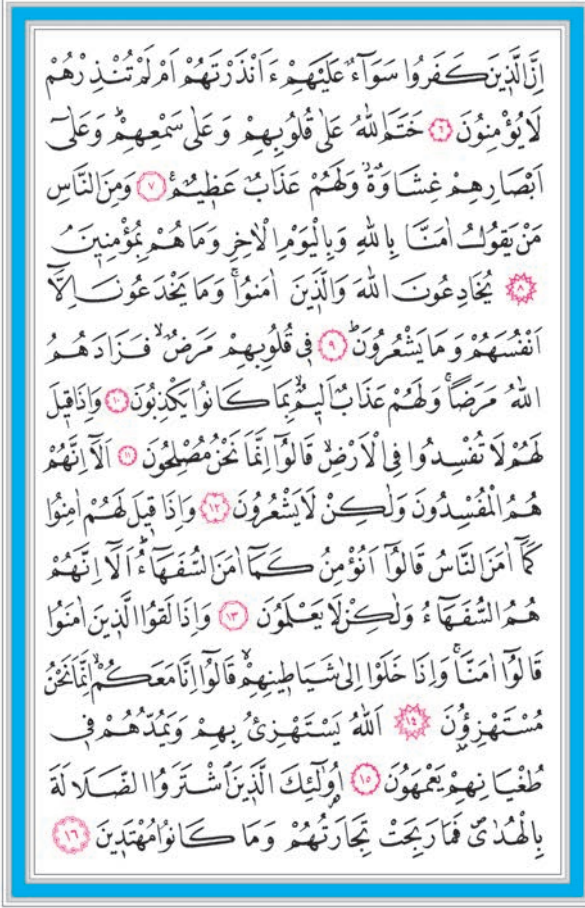 اِنَّ الَّذ۪ينَ كَفَرُوا سَوَٓاءٌ عَلَيْهِمْ ءَاَنْذَرْتَهُمْ اَمْ لَمْ تُنْذِرْهُمْ
لَا يُؤْمِنُونَ ﴿٦﴾ خَتَمَ اللّٰهُ عَلٰى قُلُوبِهِمْ وَعَلٰى سَمْعِهِمْۜ وَعَلٰٓى
اَبْصَارِهِمْ غِشَاوَةٌۘ وَلَهُمْ عَذَابٌ عَظ۪يمٌ۟ ﴿٧﴾ وَمِنَ النَّاسِ
مَنْ يَقُولُ اٰمَنَّا بِاللّٰهِ وَبِالْيَوْمِ الْاٰخِرِ وَمَا هُمْ بِمُؤْمِن۪ينَۢ
﴿٨﴾ يُخَادِعُونَ اللّٰهَ وَالَّذ۪ينَ اٰمَنُواۚ وَمَا يَخْدَعُونَ اِلَّٓا
اَنْفُسَهُمْ وَمَا يَشْعُرُونَۜ ﴿٩﴾ ف۪ي قُلُوبِهِمْ مَرَضٌۙ فَزَادَهُمُ
اللّٰهُ مَرَضًاۚ وَلَهُمْ عَذَابٌ اَل۪يمٌۙ بِمَا كَانُوا يَكْذِبُونَ ﴿١٠﴾ وَاِذَا ق۪يلَ
لَهُمْ لَا تُفْسِدُوا فِي الْاَرْضِۙ قَالُٓوا اِنَّمَا نَحْنُ مُصْلِحُونَ ﴿١١﴾ اَلَٓا اِنَّهُمْ
هُمُ الْمُفْسِدُونَ وَلٰكِنْ لَا يَشْعُرُونَ ﴿١٢﴾ وَاِذَا ق۪يلَ لَهُمْ اٰمِنُوا
كَمَٓا اٰمَنَ النَّاسُ قَالُٓوا اَنُؤْمِنُ كَمَٓا اٰمَنَ السُّفَهَٓاءُۜ اَلَٓا اِنَّهُمْ
هُمُ السُّفَهَٓاءُ وَلٰكِنْ لَا يَعْلَمُونَ ﴿١٣﴾ وَاِذَا لَقُوا الَّذ۪ينَ اٰمَنُوا
قَالُٓوا اٰمَنَّاۚ وَاِذَا خَلَوْا اِلٰى شَيَاط۪ينِهِمْۙ قَالُٓوا اِنَّا مَعَكُمْۙ اِنَّمَا نَحْنُ
مُسْتَهْزِؤُ۫نَ ﴿١٤﴾ اَللّٰهُ يَسْتَهْزِئُ بِهِمْ وَيَمُدُّهُمْ ف۪ي
طُغْيَانِهِمْ يَعْمَهُونَ ﴿١٥﴾ اُو۬لٰٓئِكَ الَّذ۪ينَ اشْتَرَوُا الضَّلَالَةَ
بِالْهُدٰىۖ فَمَا رَبِحَتْ تِجَارَتُهُمْ وَمَا كَانُوا مُهْتَد۪ينَ ﴿١٦﴾